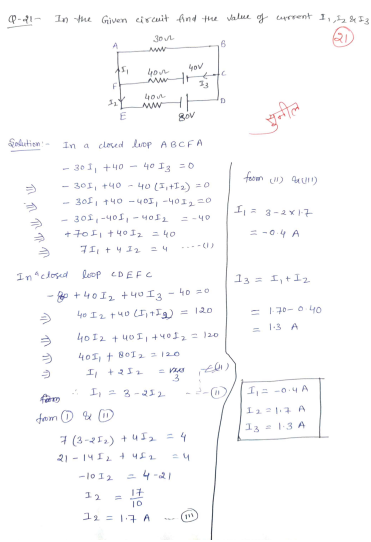 Q-21- In the Given circuit find the value of current I₁, I₂ & I₃
21
30Ω
A B
I₁ 40Ω 40V
F C
I₃
I₂ 40Ω
E D
80V
सुनील
Solution:- In a closed loop A B C F A
- 30I₁ + 40 - 40 I₃ = 0
⇒ - 30I₁ + 40 - 40 (I₁+I₂) = 0
⇒ - 30I₁ + 40 - 40I₁ - 40I₂ = 0
⇒ - 30I₁ - 40I₁ - 40I₂ = -40
⇒ +70I₁ + 40I₂ = 40
⇒ 7I₁ + 4I₂ = 4 ----(i)
In a closed loop C D E F C
- 80 + 40I₂ + 40I₃ - 40 = 0
⇒ 40I₂ + 40 (I₁+I₂) = 120
⇒ 40I₂ + 40I₁ + 40I₂ = 120
⇒ 40I₁ + 80I₂ = 120
⇒ I₁ + 2I₂ = 3 (ii)
∴ I₁ = 3 - 2I₂ -- (ii)
from (i) & (ii)
7 (3-2I₂) + 4I₂ = 4
21 - 14I₂ + 4I₂ = 4
-10I₂ = 4-21
I₂ = 17/10
I₂ = 1.7 A --- (iii)
from (ii) & (iii)
I₁ = 3 - 2×1.7
= -0.4 A
I₃ = I₁ + I₂
= 1.70 - 0.40
= 1.3 A
I₁ = -0.4 A
I₂ = 1.7 A
I₃ = 1.3 A